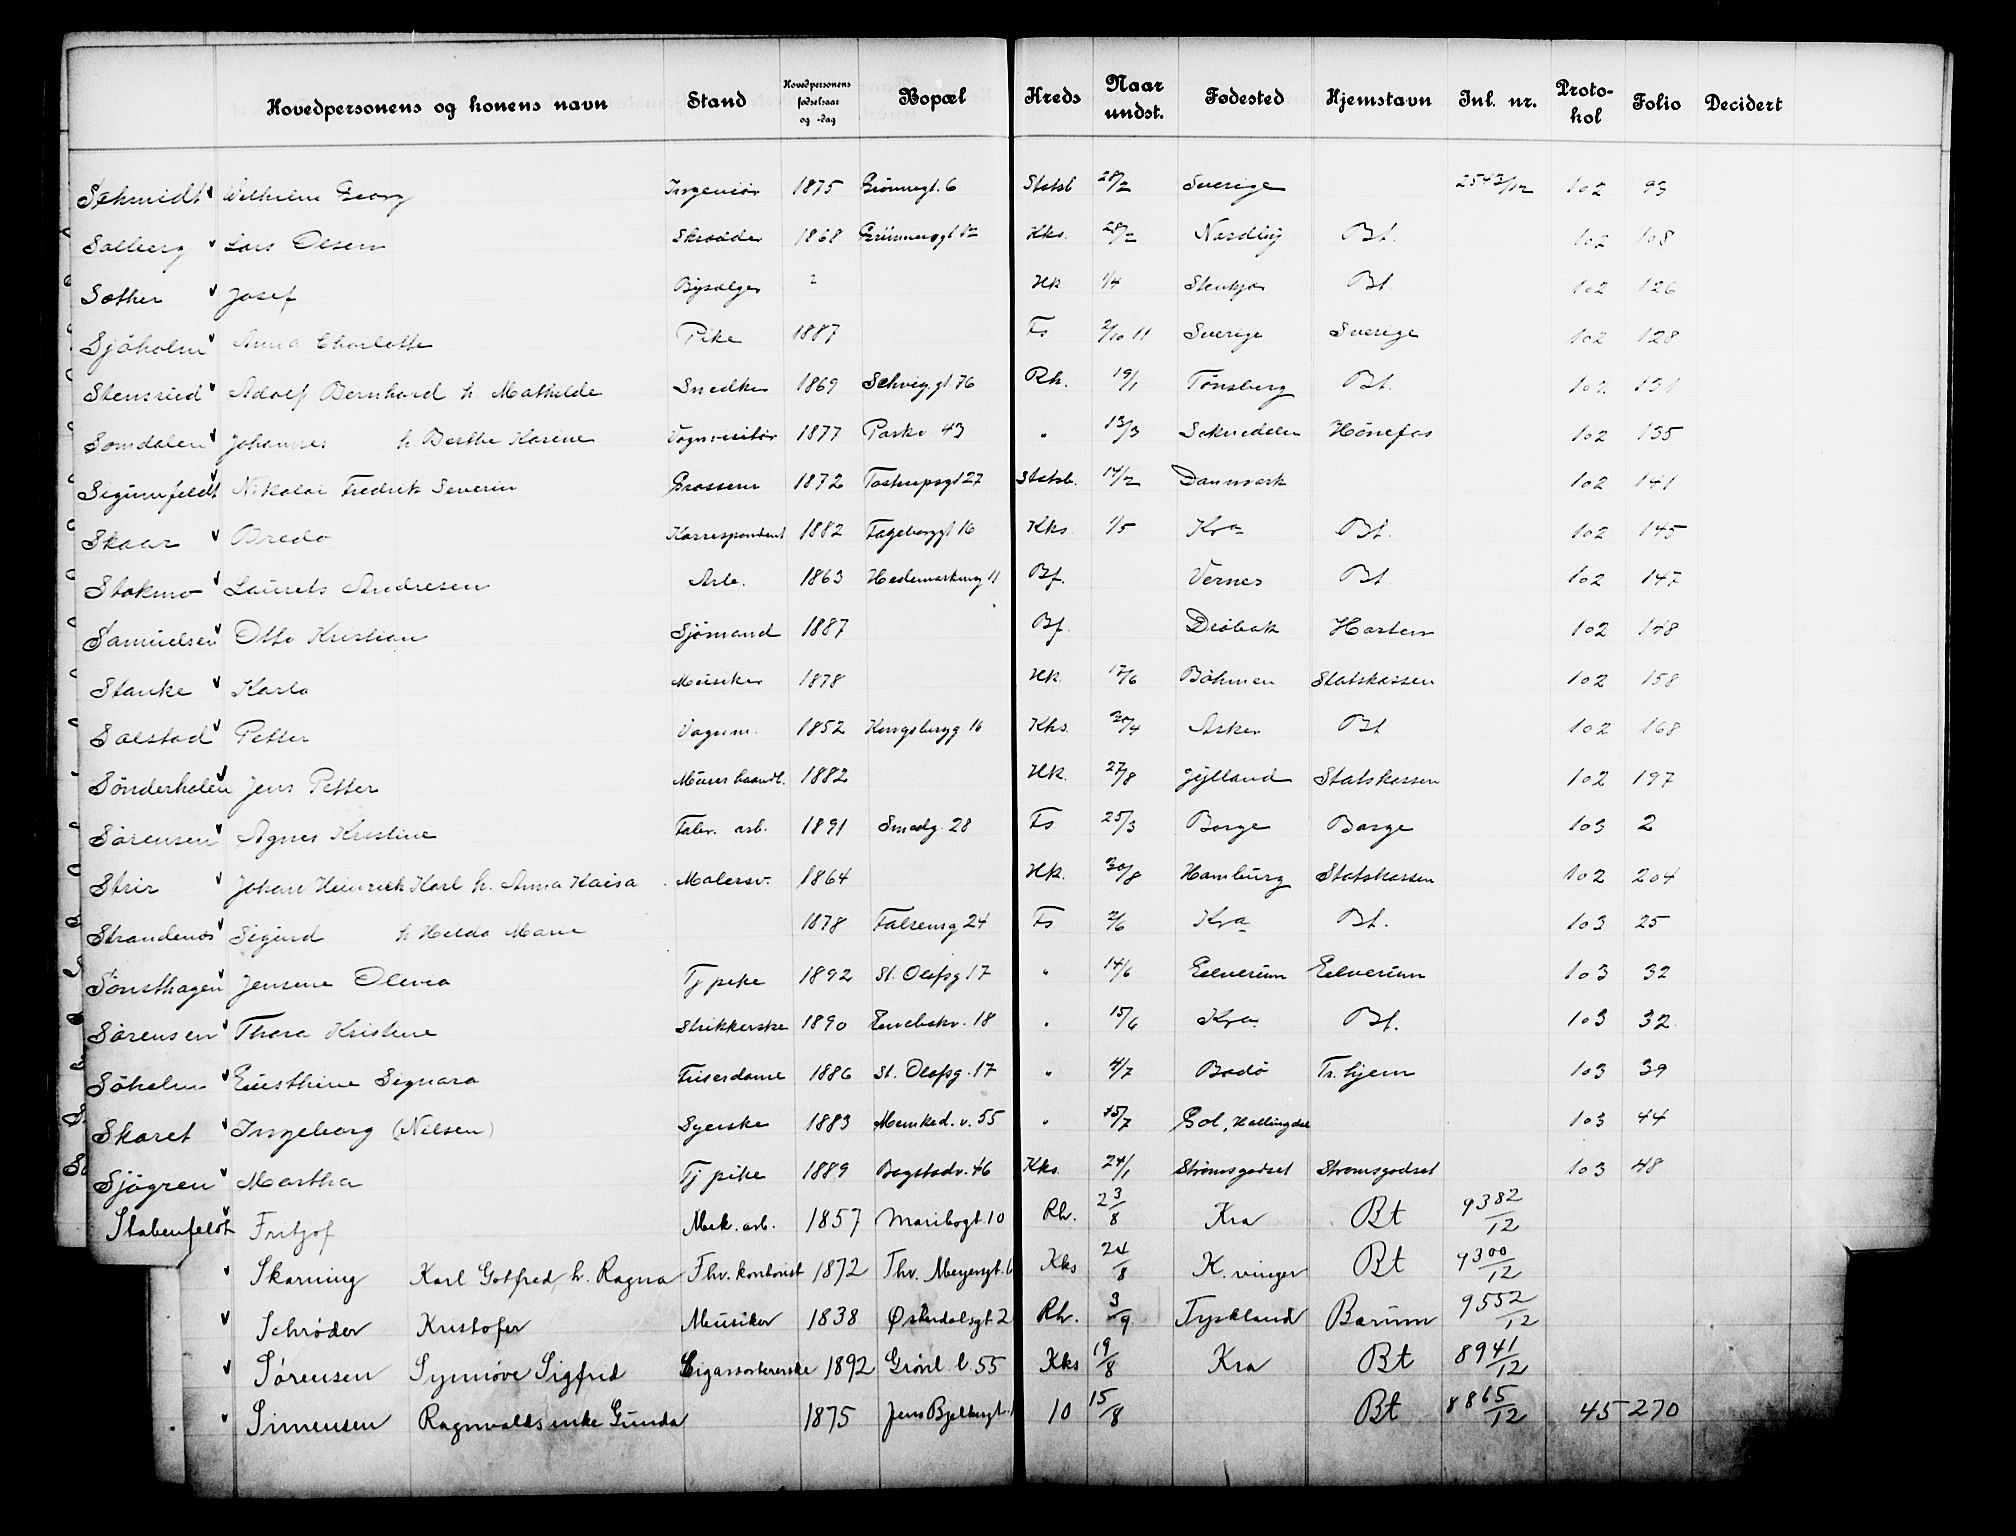 Hovedpersonens og konens navn Stand Hovedpersonens fødselsaar og -dag Bopæl Kreds Naar undst. Fødested Hjemstavn Inl. nr. Protokol Folio Decidert
Schmidt Wilhelm Georg Ingeniør 1875 Grønnegt. 6 Statsb 28/2 Sverige 2543/12 102 93
Solberg Lars Olsen Skrædder 1868 Grünnersgt 12 Kks. 28/2 Nordby Bt. 102 108
Sæther Josef Bysælger Hk 1/4 Stenkjær Bt 102 126
Sjöholm Anna Charlotte Pike 1887 Fs 2/10 11 Sverige Sverige 102 128
Stensrud Adolf Bernhard h. Mathilde Snedker 1869 Schweig.gt. 76 Rh. 19/1 Tønsberg Bt. 102 131
Somdalen Johannes h Berthe Karine Vognvisitør 1877 Parkv 43 " 13/3 Soknedalen Hönefos 102 135
Sigumfeldt Nikolai Fredrik Severin Grosserer 1872 Tostrupsgt 27 Statsb. 14/2 Danmark 102 141
Skaar Bredo Korrespondent 1882 Fageborggt 16 Kks 1/5 Kra Bt. 102 145
Stokmo Laurits Andresen Arb. 1863 Hedemarksvg 11 Bf. Vernes Bt. 102 147
Samuelsen Otto Kristian Sjömand 1887 Bf. Drøbak Horten 102 148
Stanke Karlo Musiker 1878 Hk. 17/6 Böhmen Statskassen 102 158
Solstad Petter Vognm. 1852 Kongsbergg 16 Kks 30/4 Asker Bt 102 168
Sönderholm Jens Petter Murerhaandl. 1882 Hk. 27/8 Jylland Statskassen 102 197
Sørensen Agnes Kristine Fabr. arb. 1891 Smedg. 28 Fs 25/3 Borge Borge 103 2
Strir Johan Heinrich Karl h. Anna Kaisa Malersv. 1864 Hk. 30/8 Hamburg Statskassen 102 204
Strandenæs Sigurd h Helda Marie 1878 Falsensg 24 Fs 2/6 Kra Bt. 103 25
Sønsthagen Jensine Olivia Tj pike 1892 St. Olafsg 17 " 14/6 Eelverum Eelverum 103 32
Sørensen Thora Kristine Strikkerske 1890 Enebakv. 18 " 15/6 Kra Bt. 103 32
Söholm Signara Friserdame 1886 St. Olafsg. 17 " 4/7 Bodö Tr.hjem 103 39
Skaret Ingeborg (Nilsen) Syerske 1883 Munked. v. 55 " 15/7 Gol, Hallingdal 103 44
Sjögren Martha Tj pike 1889 Bogstadv. 46 Kks. 24/1 Strømsgodset Strømsgodset 103 48
Stabenfeldt Fritjof Mek. arb. 1857 Maribogt. 10 Rh. 23/8 Kra Bt 9382/12
Skarning Karl Gotfred h. Ragna Fhv. kontorist 1872 Thv. Meyersgt. 6 Kks 24/8 K.vinger Bt 9300/12
Schrøder Kristofer Musiker 1838 Østerdalsgt 2 Rh. 3/9 Tyskland Bærum 9552/12
Sørensen Synnöve Sigfrid Cigarsortererske 1892 Grønl. l. 55 Kks 19/8 Kra Bt 8941/12
Simensen Ragnvalds enke Gunda 1875 Jens Bjelkesgt. 10 15/8 Bt 8865/12 45 270